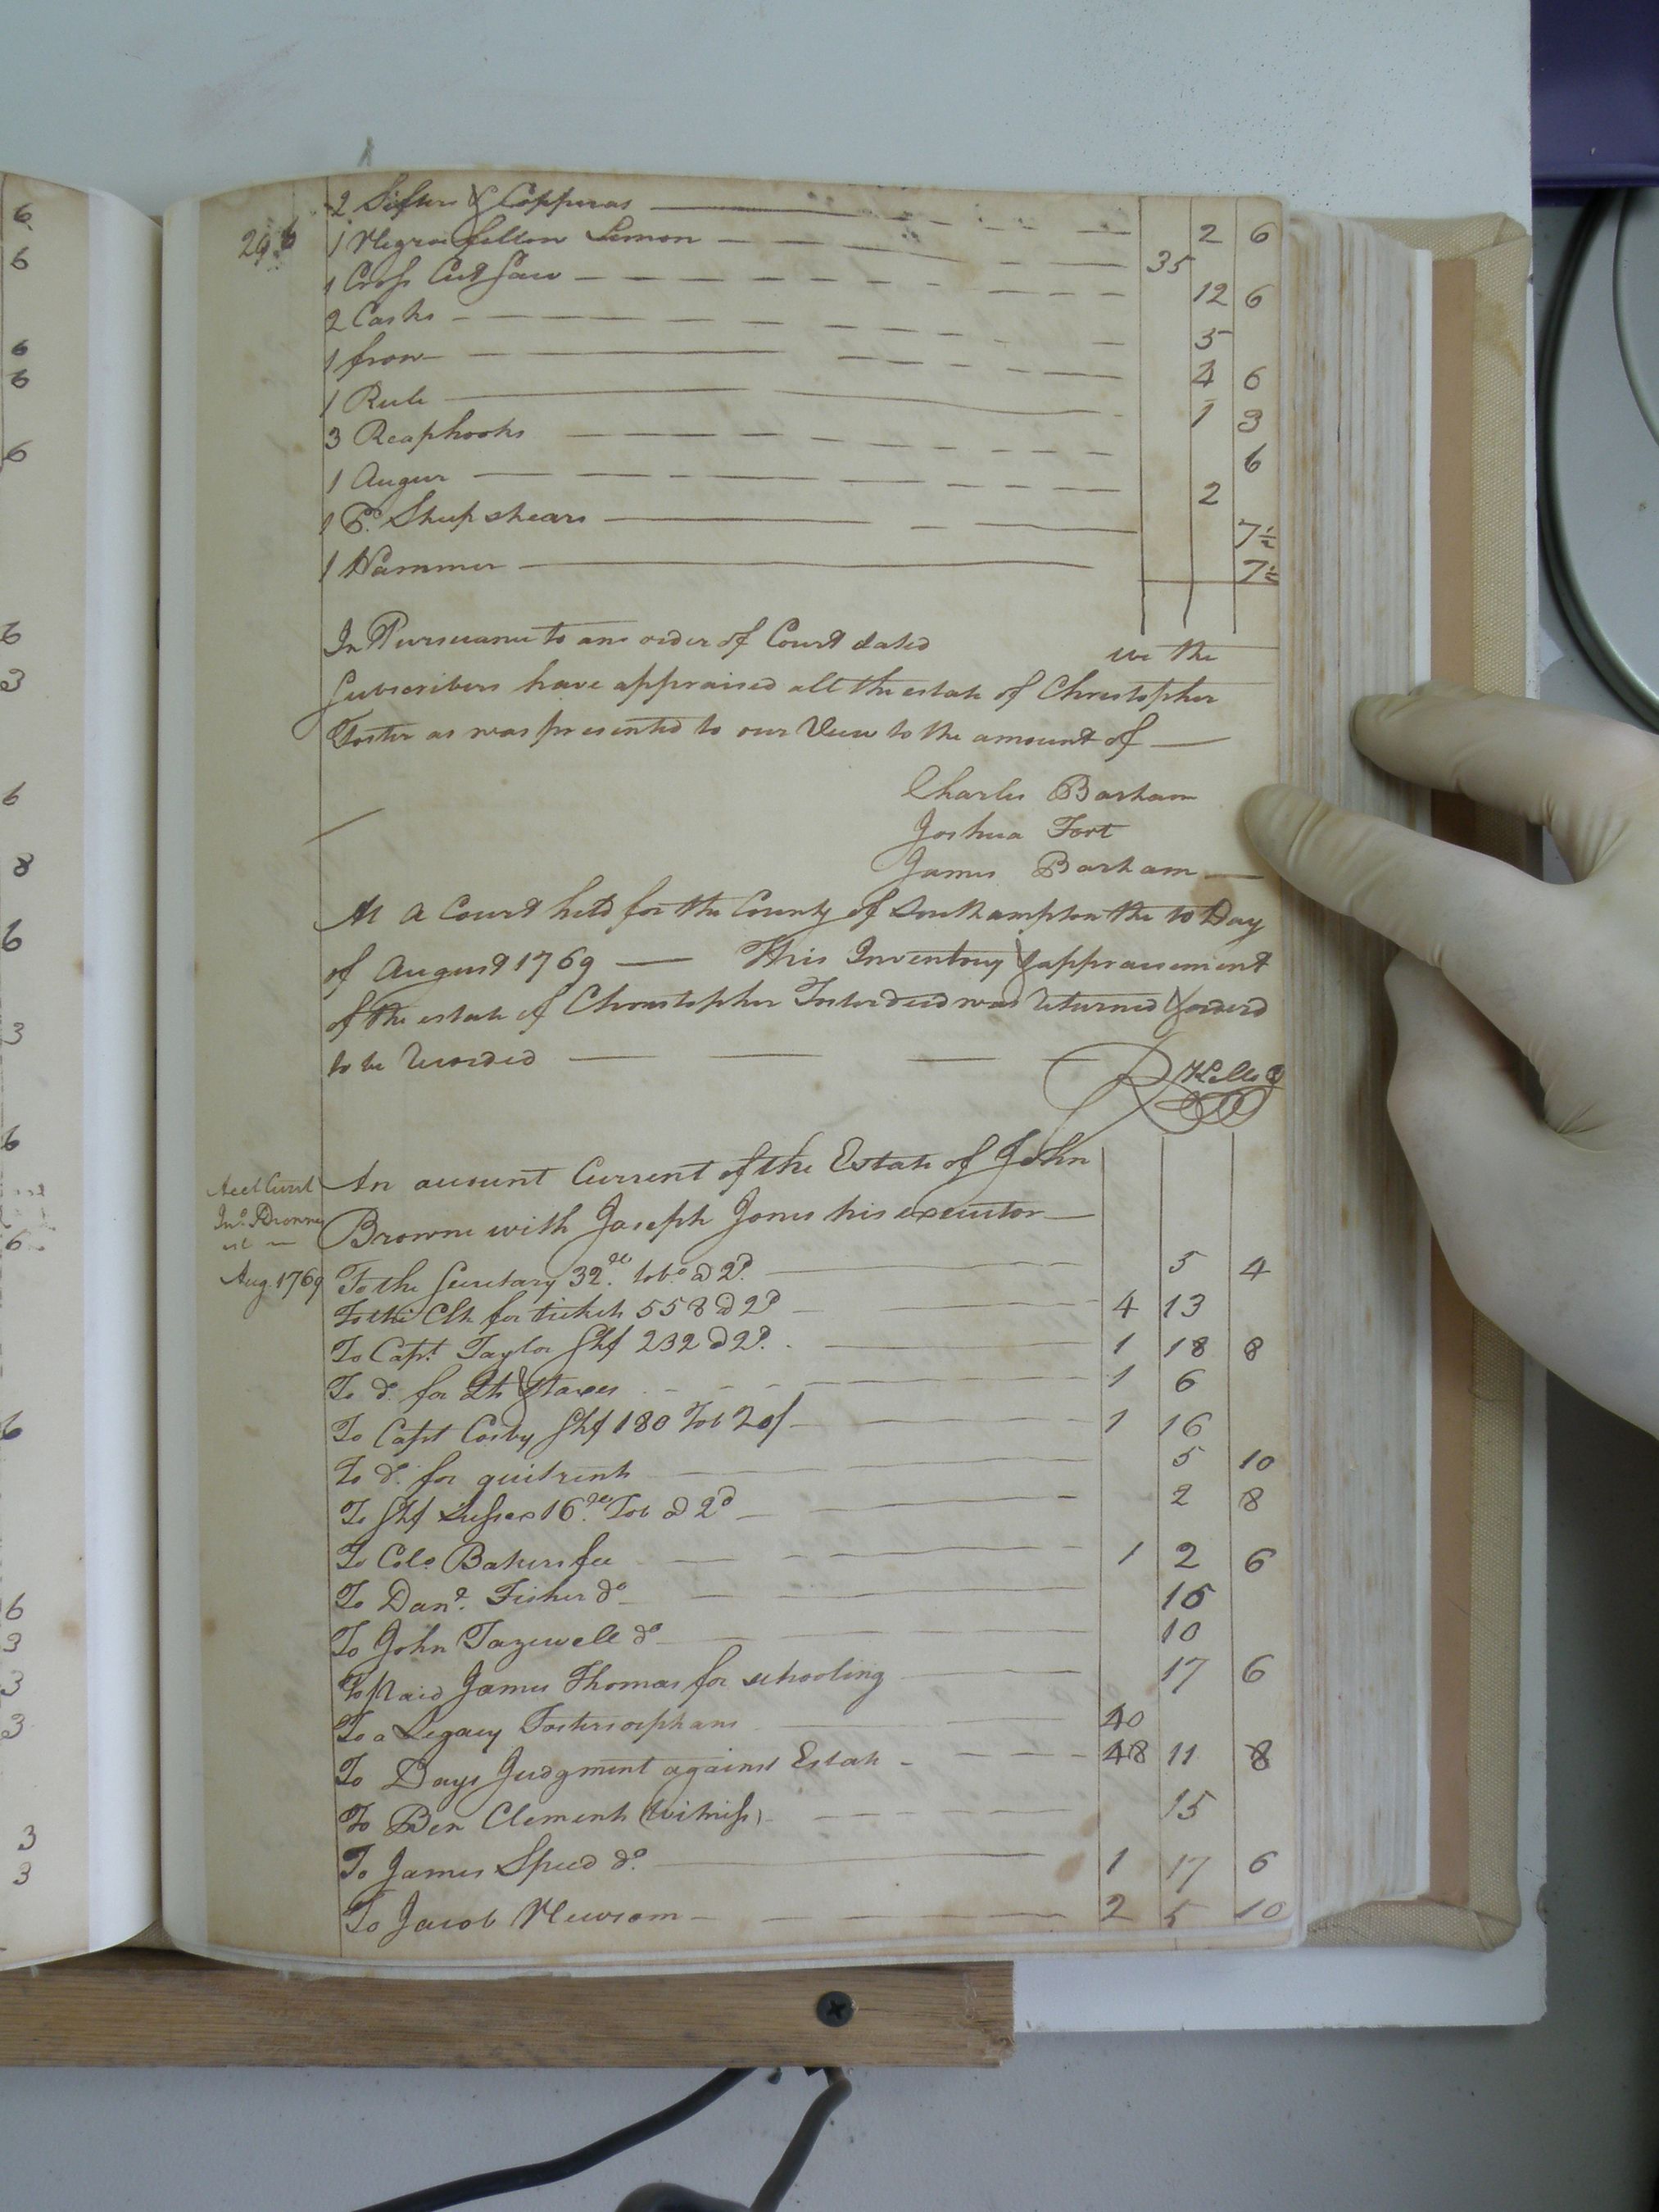 296
2 Sifters & Copperas 2 6
1 Negroe fellow Simon 35
1 Cross Cut Saw 12 6
2 Casks 5
1 frow 4 6
1 Rule 1 3
3 Reaphooks 6
1 Augur 2
1 Pr. Sheep shears 7½
1 Hammer 7½
In Pursuance to an order of Court dated we the
Subscribers have appraised all the estate of Christopher
Foster as was presented to our View to the amount of
Charles Barham
Joshua Fort
James Barham
At a Court held for the County of Southampton the 10 Day
of August 1769 — This Inventory & appraisement
of the estate of Christopher Foster decd was returned & orderd
to be recorded
R Kello
Acct Curt
Jno. Browne
est
Aug. 1769
An account Current of the Estate of John
Browne with Joseph Jones his executor
To the Secretary 32 tobo. @ 2d. 5 4
To the Clk for tickets 558 @ 2d 4 13
To Capt. Taylor Shf 232 @ 2d. 1 18 8
To do. for & taxes 1 6
To Capt Cosby Shf 180 Tob 20/ 1 16
To do. for quitrents 5 10
To Shf Sussex 16 Tob @ 2d 2 8
To Colo Bakers fee 1 2 6
To Danl. Fisher do 15
To John Tazewell do 10
To paid James Thomas for schooling 17 6
To a Legacy Fosters orphans 40
To Days Judgment against Estate 48 11 8
To Ben Clements (witness) 15
To James Speed do. 1 17 6
To Jacob Newsom 2 5 10